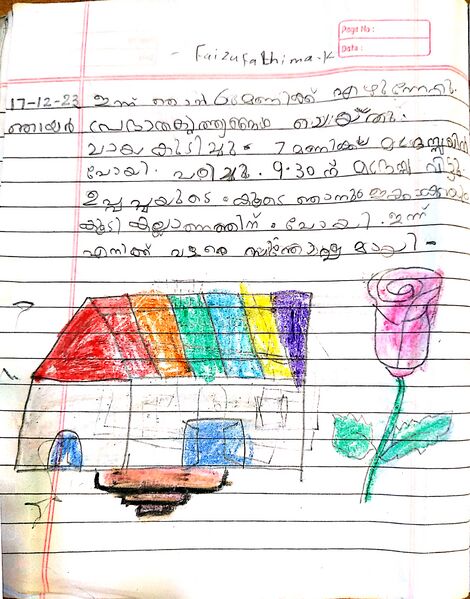 Page No :
Date :
- Faizufathima.K
17-12-23 ഇന്ന് ഞാൻ 6 മണിക്ക് എഴുന്നേറ്റു.
ഞായർ പ്രഭാതകൃത്യങ്ങൾ ചെയ്തു.
ചായ കുടിച്ചു. 7 മണിക്ക് മദ്രസ്സയിൽ
പോയി. പഠിച്ചു. 9.30 ന് മദ്രസ വിട്ടു
ഉപ്പയുടെ കൂടെ ഞാനും
കൂടി കല്ല്യാണത്തിന് പോയി. ഇന്ന്
എനിക്ക് വളരെ സന്തോഷമായി -